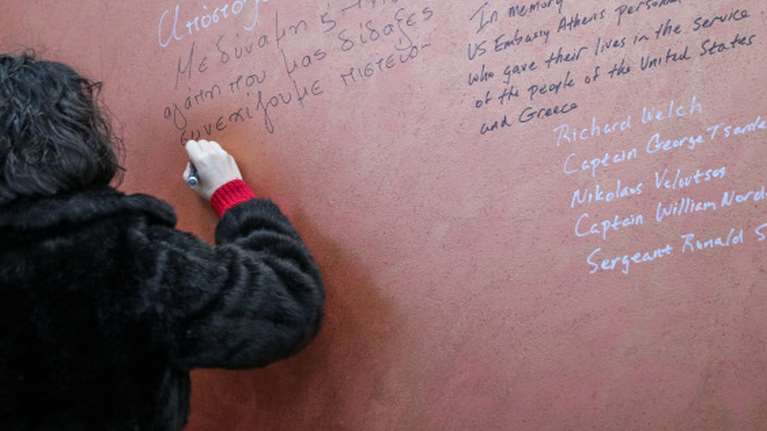 Με δύναμη &
αγάπη που μας δίδαξες
συνεχίζουμε πιστεύο
In memory
US Embassy Athens person
who gave their lives in the service
of the people of the United States
and Greece
Richard Welch
Captain George Tsante
Nikolaos Veloutsos
Captain William Nord
Sergeant Ronald S